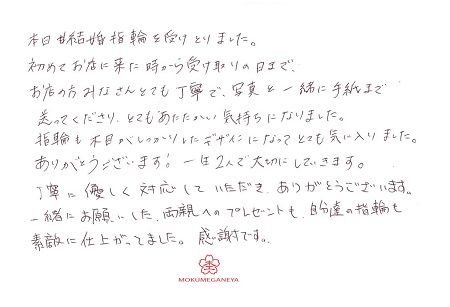 本日は結婚指輪を受けとりました。
初めてお店に来た時から受け取りの日まで、
お店の方みなさんとても丁寧で、写真と一緒に手紙まで
送ってくださり、とてもあたたかい気持ちになりました。
指輪も木目がしっかりしたデザインになってとても気に入りました。
ありがとうございます! 一生2人で大切にしていきます。
丁寧に優しく対応していただき、ありがとうございます。
一緒にお願いした、両親へのプレゼントも、自分達の指輪も
素敵に仕上がってました。感謝です。
MOKUMEGANEYA